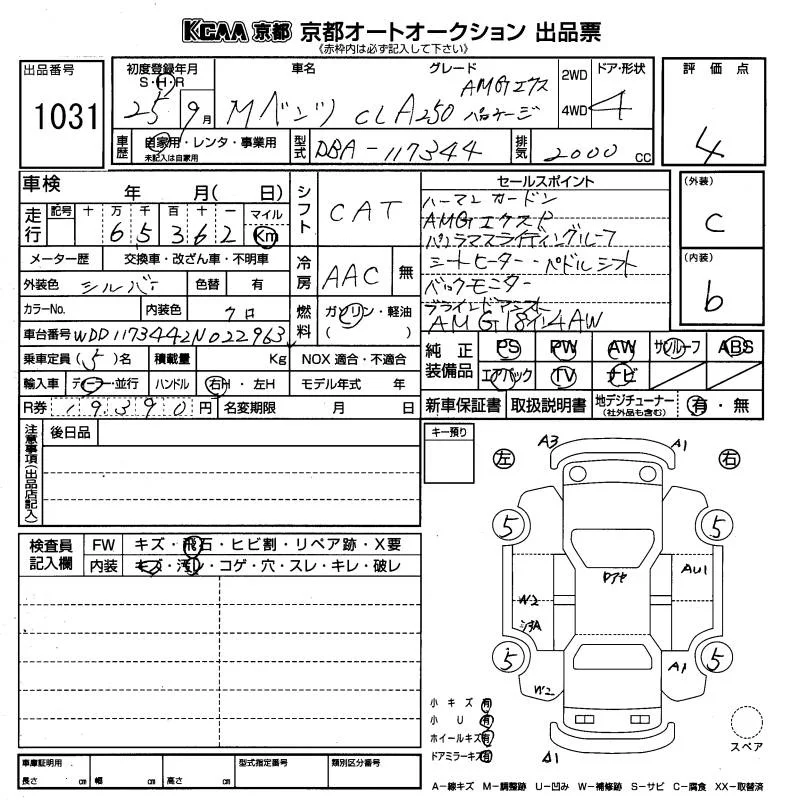 KCAA 京都 京都オートオークション 出品票
《赤枠内は必ず記入して下さい》
出品番号
1031
初度登録年月
S・H・R
25 9月
車名
Mベンツ CLA250
グレード
AMGエクス
パッケージ
2WD
4WD
ドア・形状
4
評価点
4
車歴
自家用・レンタ・事業用
未記入は自家用
型式
DBA-117344
排気
2000 cc
車検
年 月( 日)
走行
記号 十 万 千 百 十 一 マイル
6 5 3 6 2 Km
メーター歴 交換車・改ざん車・不明車
外装色 シルバー 色替 有
カラーNo. 内装色 クロ
車台番号 WDD1173442N022963
乗車定員 (5)名 積載量 Kg NOX 適合・不適合
輸入車 ディーラー・並行 ハンドル 右H・左H モデル年式 年
R券 19390円 名変期限 月 日
シフト
CAT
冷房
AAC 無
燃料
ガソリン・軽油
( )
セールスポイント
ハーマンカードン
AMGエクスP
パノラマスライディングルーフ
シートヒーター・ペドルシフト
バックモニター
ブラインドアシスト
AMG18インチAW
(外装)
C
(内装)
b
純正装備品
PS PW AW サンルーフ ABS
エアバック TV ナビ
新車保証書 取扱説明書 地デジチューナー
(社外品も含む)
有・無
注意事項(出品店記入)
後日品
キー預り
検査員記入欄
FW キズ・飛石・ヒビ割・リペア跡・X要
内装 キズ・汚レ・コゲ・穴・スレ・キレ・破レ
左
右
A3
A1
5
5
AU1
W2
5
5
A1
W2
A1
小キズ 有
小U 有
ホイールキズ 有
ドアミラーキズ 有
スペア
車庫証明用
長さ cm 幅 cm 高さ cm
型式指定番号
類別区分番号
A-線キズ M-調整跡 U-凹み W-補修跡 S-サビ C-腐食 XX-取替済